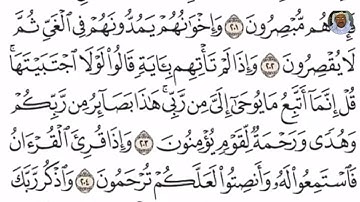 هُم مُّبْصِرُونَ ٢٠١ وَإِخْوَٰنُهُمْ يَمُدُّونَهُمْ فِى ٱلْغَىِّ ثُمَّ
لَا يُقْصِرُونَ ٢٠٢ وَإِذَا لَمْ تَأْتِهِم بِـَٔايَةٍ قَالُوا۟ لَوْلَا ٱجْتَبَيْتَهَا ۚ
قُلْ إِنَّمَآ أَتَّبِعُ مَا يُوحَىٰٓ إِلَىَّ مِن رَّبِّى ۚ هَـٰذَا بَصَآئِرُ مِن رَّبِّكُمْ
وَهُدًى وَرَحْمَةٌ لِّقَوْمٍ يُؤْمِنُونَ ٢٠٣ وَإِذَا قُرِئَ ٱلْقُرْءَانُ
فَٱسْتَمِعُوا۟ لَهُۥ وَأَنصِتُوا۟ لَعَلَّكُمْ تُرْحَمُونَ ٢٠٤ وَٱذْكُر رَّبَّكَ